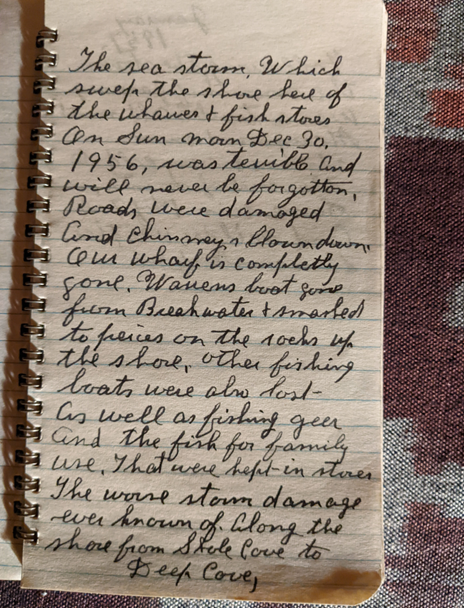 The sea storm, Which
swep the shore here of
the wharves & fish stores
On Sun morn Dec 30,
1956, was terrible and
will never be forgotton,
Roads were damaged
and chimneys blown down.
Our wharf is completly
gone. Warrens boat gone
from Breakwater & smashed
to peices on the rocks up
the shore, other fishing
boats were also lost-
as well as fishing geer
and the fish for family
use. That were kept in stores
The worse storm damage
ever known of along the
shore from Cove to
Deep Cove,